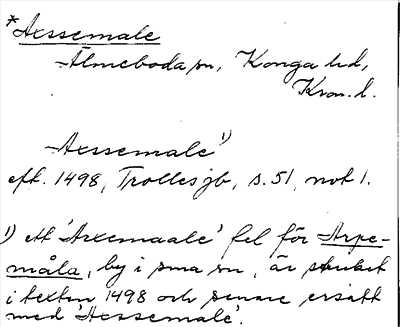 *Axssemale
Älmeboda sn, Konga hd,
Kron. l.
Axssemale 1)
eft. 1498, Trolles jb, s. 51, not 1.
1) ett 'Arxemaale' fel för Arpe-
måla, by i sma sn, är struket
i texten 1498 och senare ersatt
med 'Axssemale'.